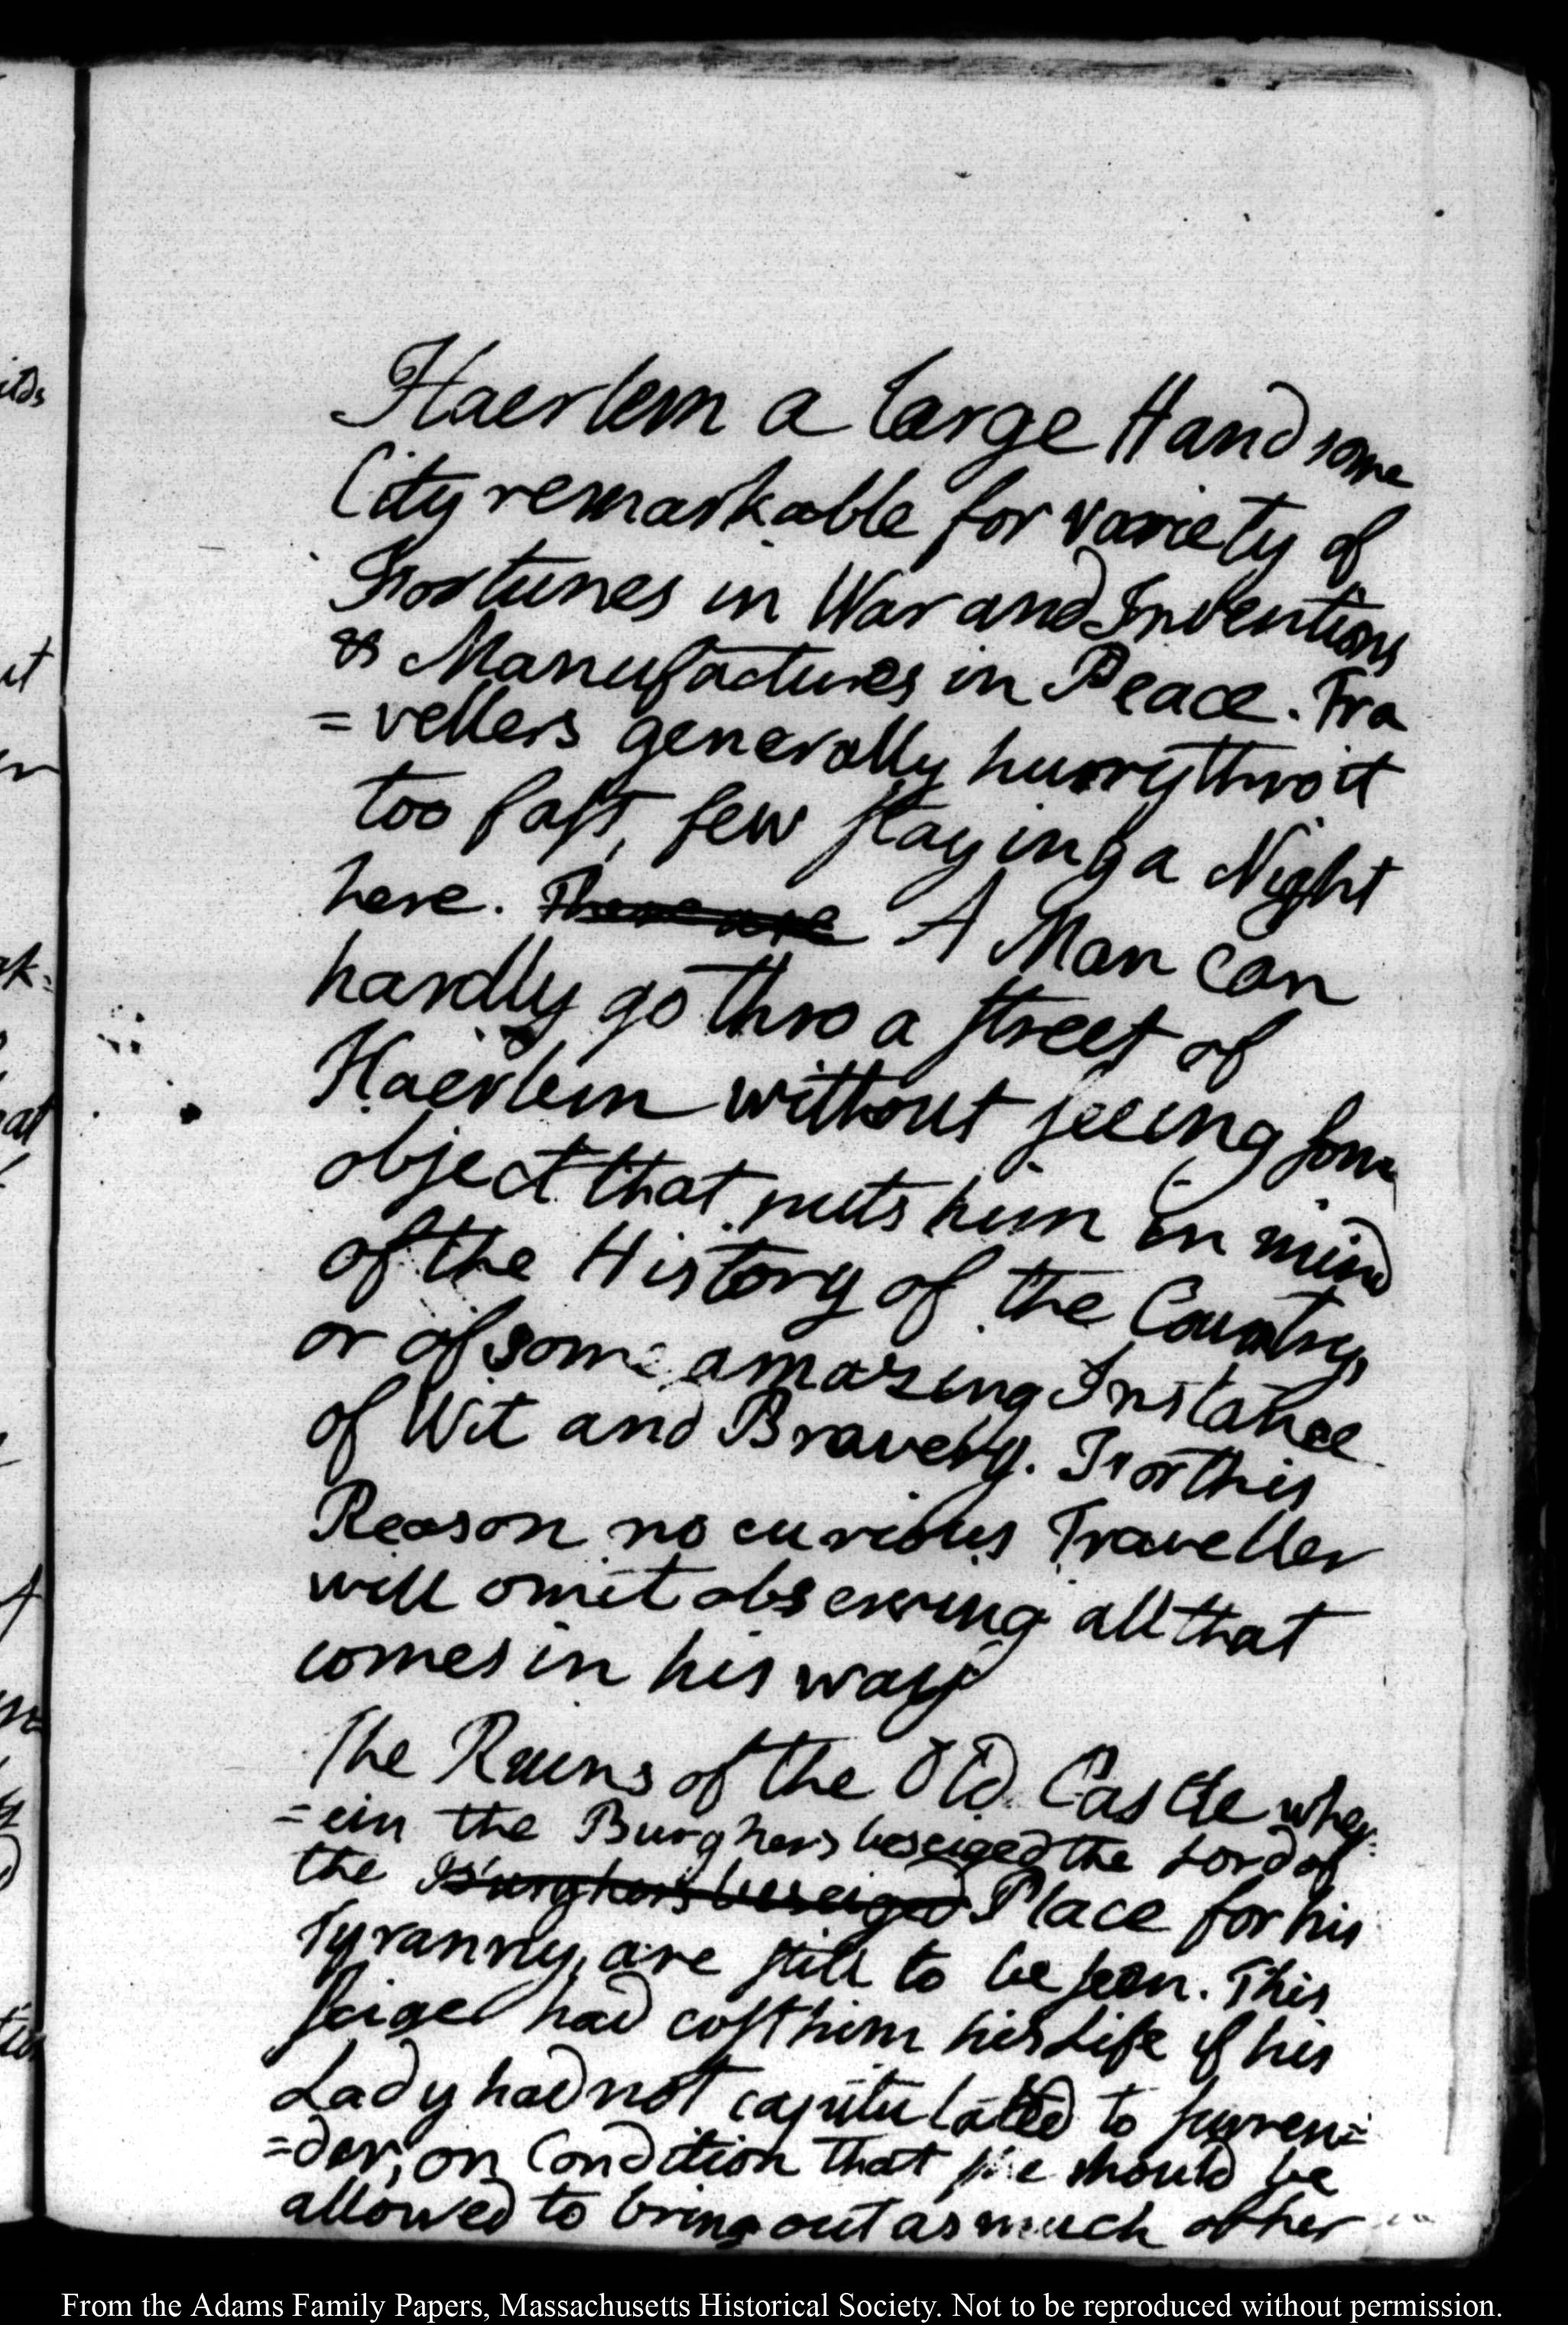 Haerlem a large Handsome
City remarkable for variety of
Fortunes in War and Inventions
& Manufactures in Peace. Tra
=vellers generally hurry thro it
too fast, few staying a Night
here. There are A Man can
hardly go thro a street of
Haerlem without seeing some
object that puts him in mind
of the History of the Country,
or of some amazing Instance
of Wit and Bravery. For this
Reason no curious Traveller
will omit observing all that
comes in his way
The Ruins of the Old Castle wher
=ein the Burghers beseiged the Lord of
the Burghers beseiged Place for his
Tyranny, are still to be seen. This
seige had cost him his Life if his
Lady had not capitulated to surren=
=der, on Condition that she should be
allowed to bring out as much of her
From the Adams Family Papers, Massachusetts Historical Society. Not to be reproduced without permission.